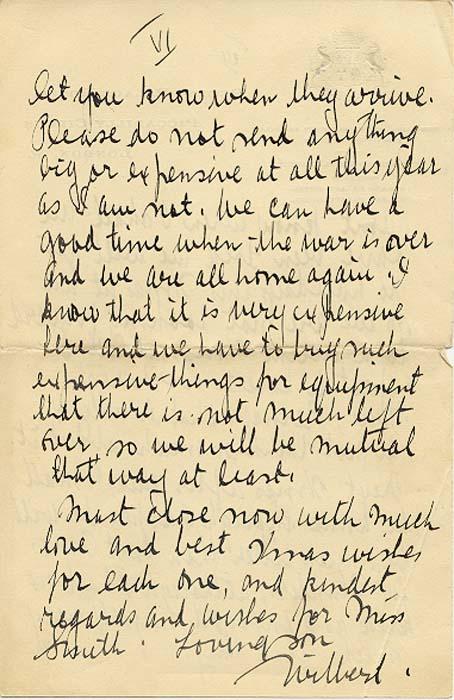 VI
let you know when they arrive.
Please do not send anything
big or expensive at all this year
as I am not. We can have a
good time when the war is over
and we are all home again. I
know that it is very expensive
here and we have to buy such
expensive things for equipment
that there is not much left
over so we will be mutual
that way at least.
Must close now with much
love and best Xmas wishes
for each one, and kindest
regards and wishes for Miss
Smith. Loving son
Wilbert.